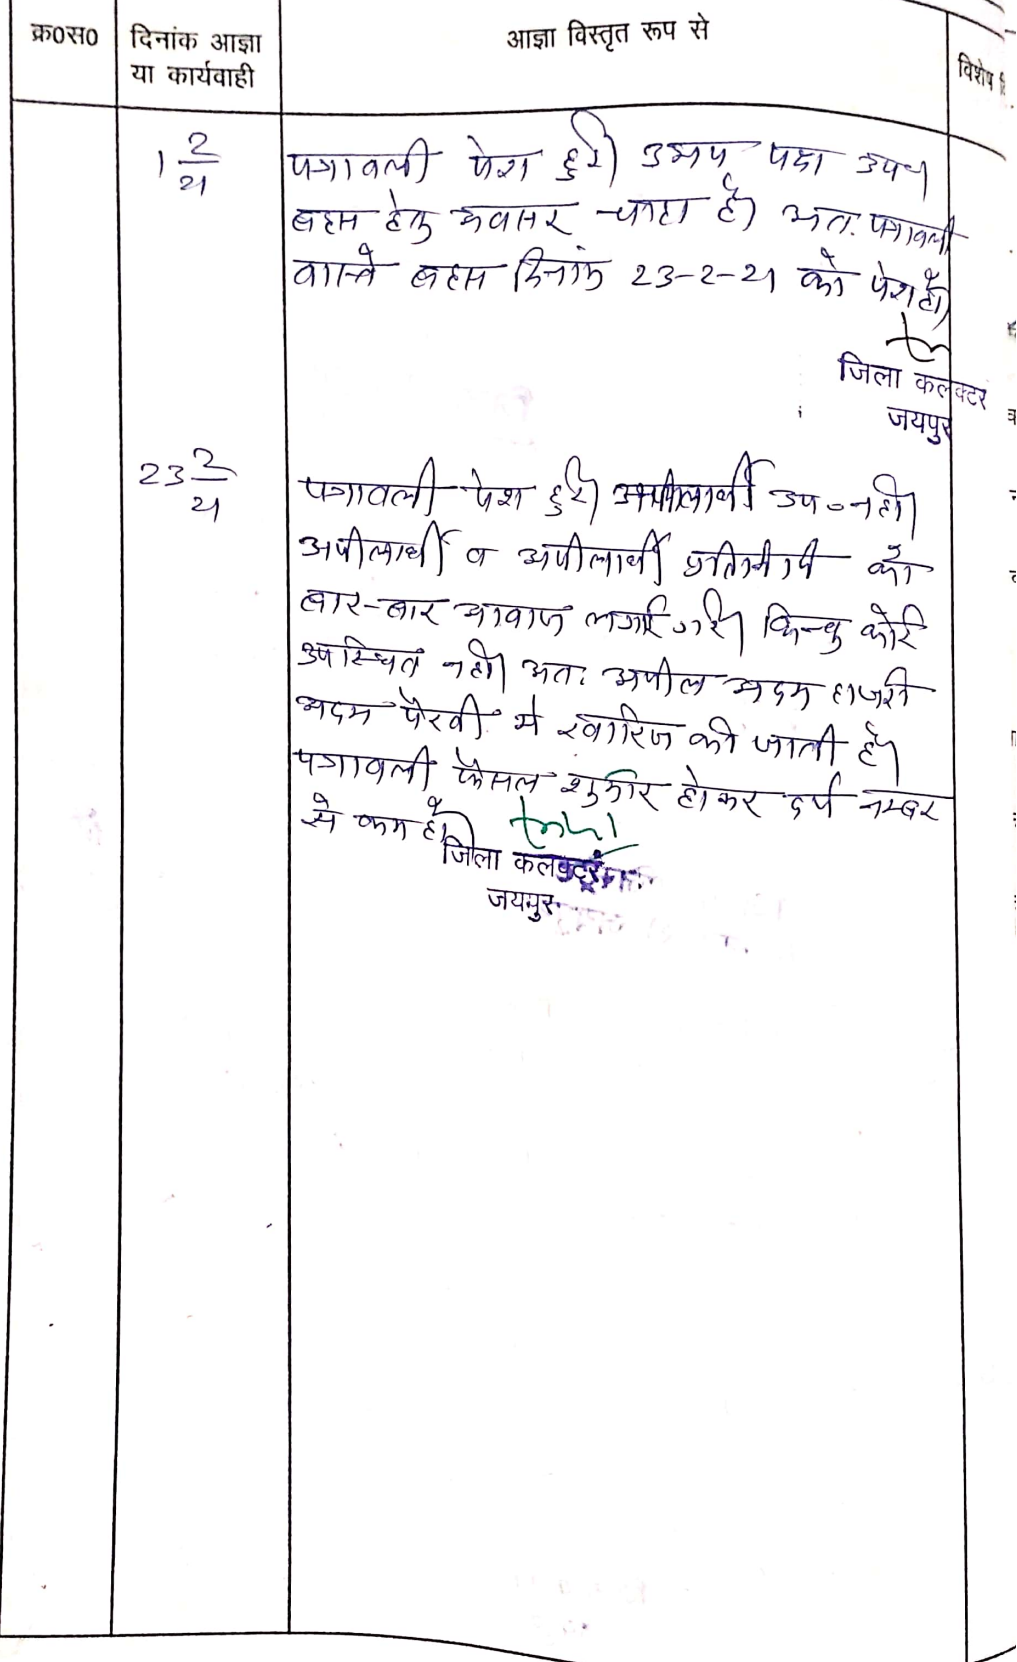 क्र०स०
दिनांक आज्ञा
या कार्यवाही
आज्ञा विस्तृत रूप से
विशेष
1 2/21
पत्रावली पेश हुई। उभय पक्ष उप०
बहस हेतु अवसर चाहा है। अतः पत्रावली
वास्ते बहस दिनांक 23-2-21 को पेश हो।
जिला कलक्टर
जयपुर
23 2/21
पत्रावली पेश हुई। अपीलार्थी उप० नही।
अपीलार्थी व अपीलार्थी प्रतिनिधि को
बार-बार आवाज लगाई गई। किन्तु कोई
उपस्थित नही। अतः अपील अदम हाजरी
अदम पैरवी में खारिज की जाती है।
पत्रावली फैसल शुमार होकर दर्ज नम्बर
से कम हो।
जिला कलक्टर
जयपुर